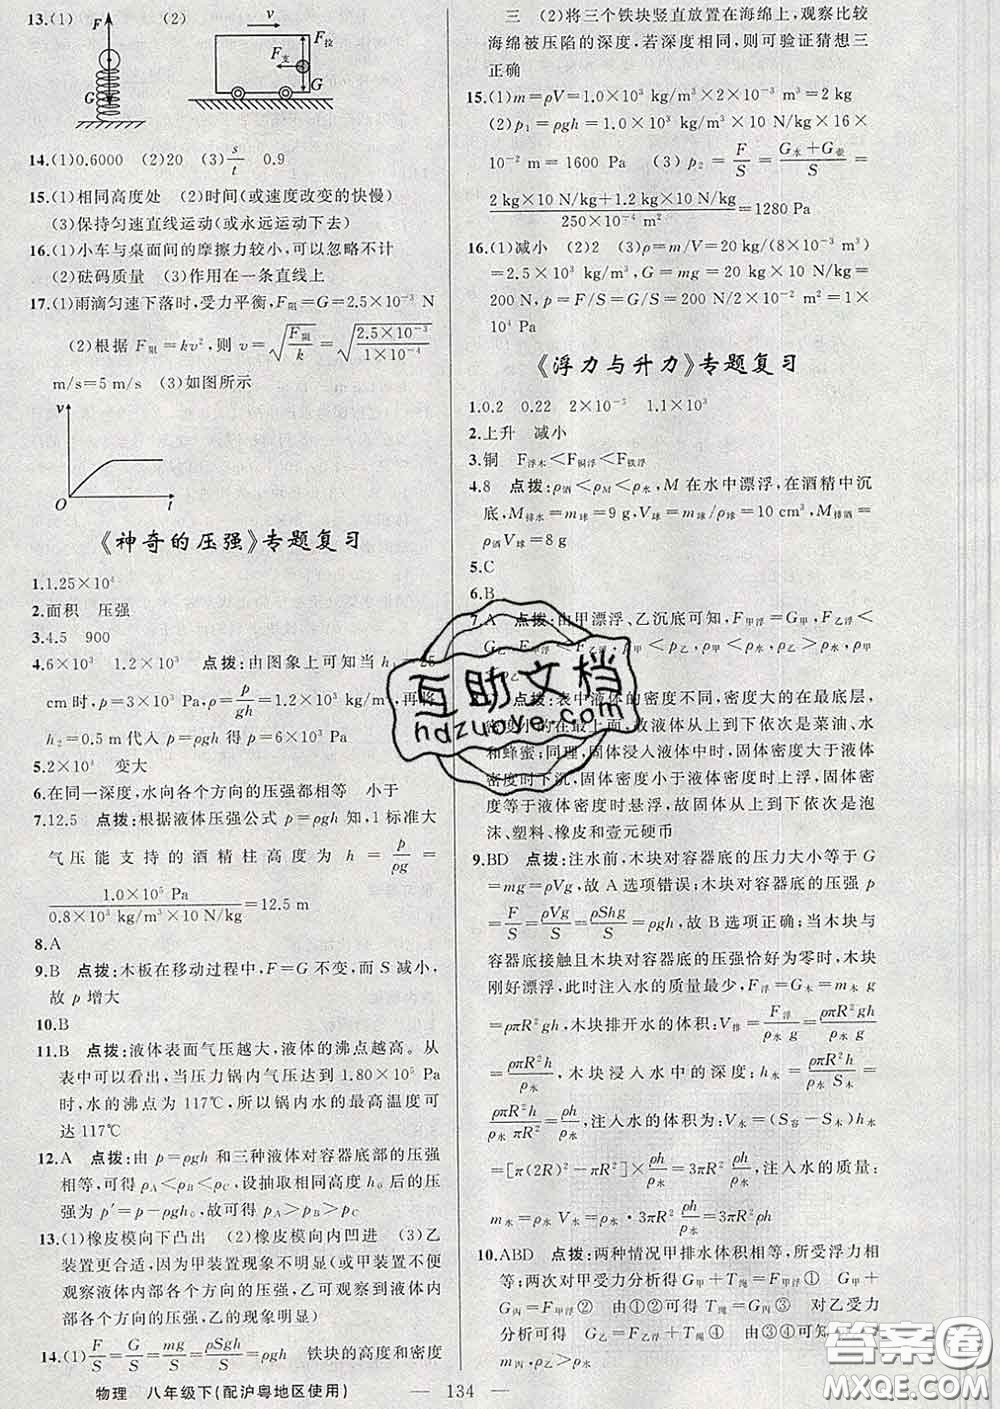 13.(1) F G (2) v F拉 F支 G
14.(1)0.6000 (2)20 (3)s/t 0.9
15.(1)相同高度处 (2)时间(或速度改变的快慢)
(3)保持匀速直线运动(或永远运动下去)
16.(1)小车与桌面间的摩擦力较小,可以忽略不计
(2)砝码质量 (3)作用在一条直线上
17.(1)雨滴匀速下落时,受力平衡,F阻=G=2.5×10⁻³ N
(2)根据 F阻=kv²,则 v=√(F阻/k)=√(2.5×10⁻³/1×10⁻⁴)
m/s=5 m/s (3)如图所示
v
O t
《神奇的压强》专题复习
1.1.25×10⁴
2.面积 压强
3.4.5 900
4.6×10³ 1.2×10³ 点拨:由图象上可知当 h₁ 25
cm时,p=3×10³ Pa,ρ=p/gh=1.2×10³ kg/m³,再将
h₂=0.5 m代入 p=ρgh 得 p=6×10³ Pa
5.2×10⁴ 变大
6.在同一深度,水向各个方向的压强都相等 小于
7.12.5 点拨:根据液体压强公式 p=ρgh知,1标准大
气压能支持的酒精柱高度为 h=p/ρg=
1.0×10⁵ Pa/0.8×10³ kg/m³×10 N/kg=12.5 m
8.A
9.B 点拨:木板在移动过程中,F=G 不变,而 S 减小,
故 p 增大
10.B
11.B 点拨:液体表面气压越大,液体的沸点越高。从
表中可以看出,当压力锅内气压达到 1.80×10⁵ Pa
时,水的沸点为 117℃,所以锅内水的最高温度可
达117℃
12.A 点拨:由 p=ρgh 和三种液体对容器底部的压强
相等,可得 ρA<ρB<ρC,设抽取相同高度 h₀ 后的压
强为 p′=p-ρgh₀,可得 pA>pB>pC
13.(1)橡皮模向下凸出 (2)橡皮模向内凹进 (3)乙
装置更合适,因为甲装置现象不明显(或甲装置不便
观察液体内部各个方向的压强,乙可观察到液体内
部各个方向的压强,乙的现象明显)
14.(1)F/S=G/S=mg/S=ρSgh/S=ρgh 铁块的高度和密度
三 (2)将三个铁块竖直放置在海绵上,观察比较
海绵被压陷的深度,若深度相同,则可验证猜想三
正确
15.(1)m=ρV=1.0×10³ kg/m³×2×10⁻³ m³=2 kg
(2)p₁=ρgh=1.0×10³ kg/m³×10 N/kg×16×
10⁻² m=1600 Pa (3)p₂=F/S=G水+G壶/S=
2 kg×10 N/kg+1.2 kg×10 N/kg/250×10⁻⁴ m²=1280 Pa
16.(1)减小 (2)2 (3)ρ=m/V=20 kg/(8×10⁻³ m³)
=2.5×10³ kg/m³,G=mg=20 kg×10 N/kg=
200 N,p=F/S=G/S=200 N/2×10⁻² m²=1×
10⁴ Pa
《浮力与升力》专题复习
1.0.2 0.22 2×10⁻⁵ 1.1×10³
2.上升 减小
3.铜 F浮木<F铜浮<F铁浮
4.8 点拨:ρ酒<ρM<ρ水,M在水中漂浮,在酒精中沉
底,M排水=m球=9 g,V球=m球/ρM=10 cm³,M排酒=
ρ酒V球=8 g
5.C
6.B
7.A 点拨:由甲漂浮、乙沉底可知,F甲浮=G甲,F乙浮<
G乙 F甲浮 <ρ乙,ρ甲<ρ水,ρ乙>ρ水,ρ甲
ρ乙
点拨:表中液体的密度不同,密度大的在最底层,
密度小的在最上面,故液体从上到下依次是菜油、水
和蜂蜜;同理,固体浸入液体中时,固体密度大于液体
密度时下沉,固体密度小于液体密度时上浮,固体密
度等于液体密度时悬浮,故固体从上到下依次是泡
沫、塑料、橡皮和壹元硬币
9.BD 点拨:注水前,木块对容器底的压力大小等于G
=mg=ρVg,故A选项错误;木块对容器底的压强 p
=F/S=ρVg/S=ρShg/S=ρgh,故B选项正确;当木块与
容器底接触且木块对容器底的压强恰好为零时,木块
刚好漂浮,此时注入水的质量最少,F浮=G木=m木g
=ρπR²gh,木块排开水的体积:V排=F浮/ρ水g=ρπR²gh/ρ水g
=ρπR²h/ρ水,木块浸入水中的深度:h水=V排/S木=ρπR²h/ρ水S木=
ρπR²h/ρ水πR²=ρh/ρ水,注入水的体积为:V水=(S容-S木)h水
=[π(2R)²-πR²]ρh/ρ水=3πR²ρh/ρ水,注入水的质量:
m水=ρ水V水=ρ水·3πR²ρh/ρ水=3πR²ρh
10.ABD 点拨:两种情况甲排水体积相等,所受浮力相
等;两次对甲受力分析得G甲+T绳=F甲浮① G甲+
G丙=F甲浮② 由①②可得 T绳=G丙③ 对乙受力
分析可得 G乙=F乙浮+T绳④ 由③④可知
m丙
物理 八年级下(配沪粤地区使用) — 134 —
互助文档
hdzuoye.com
答案圈
MXQE.COM